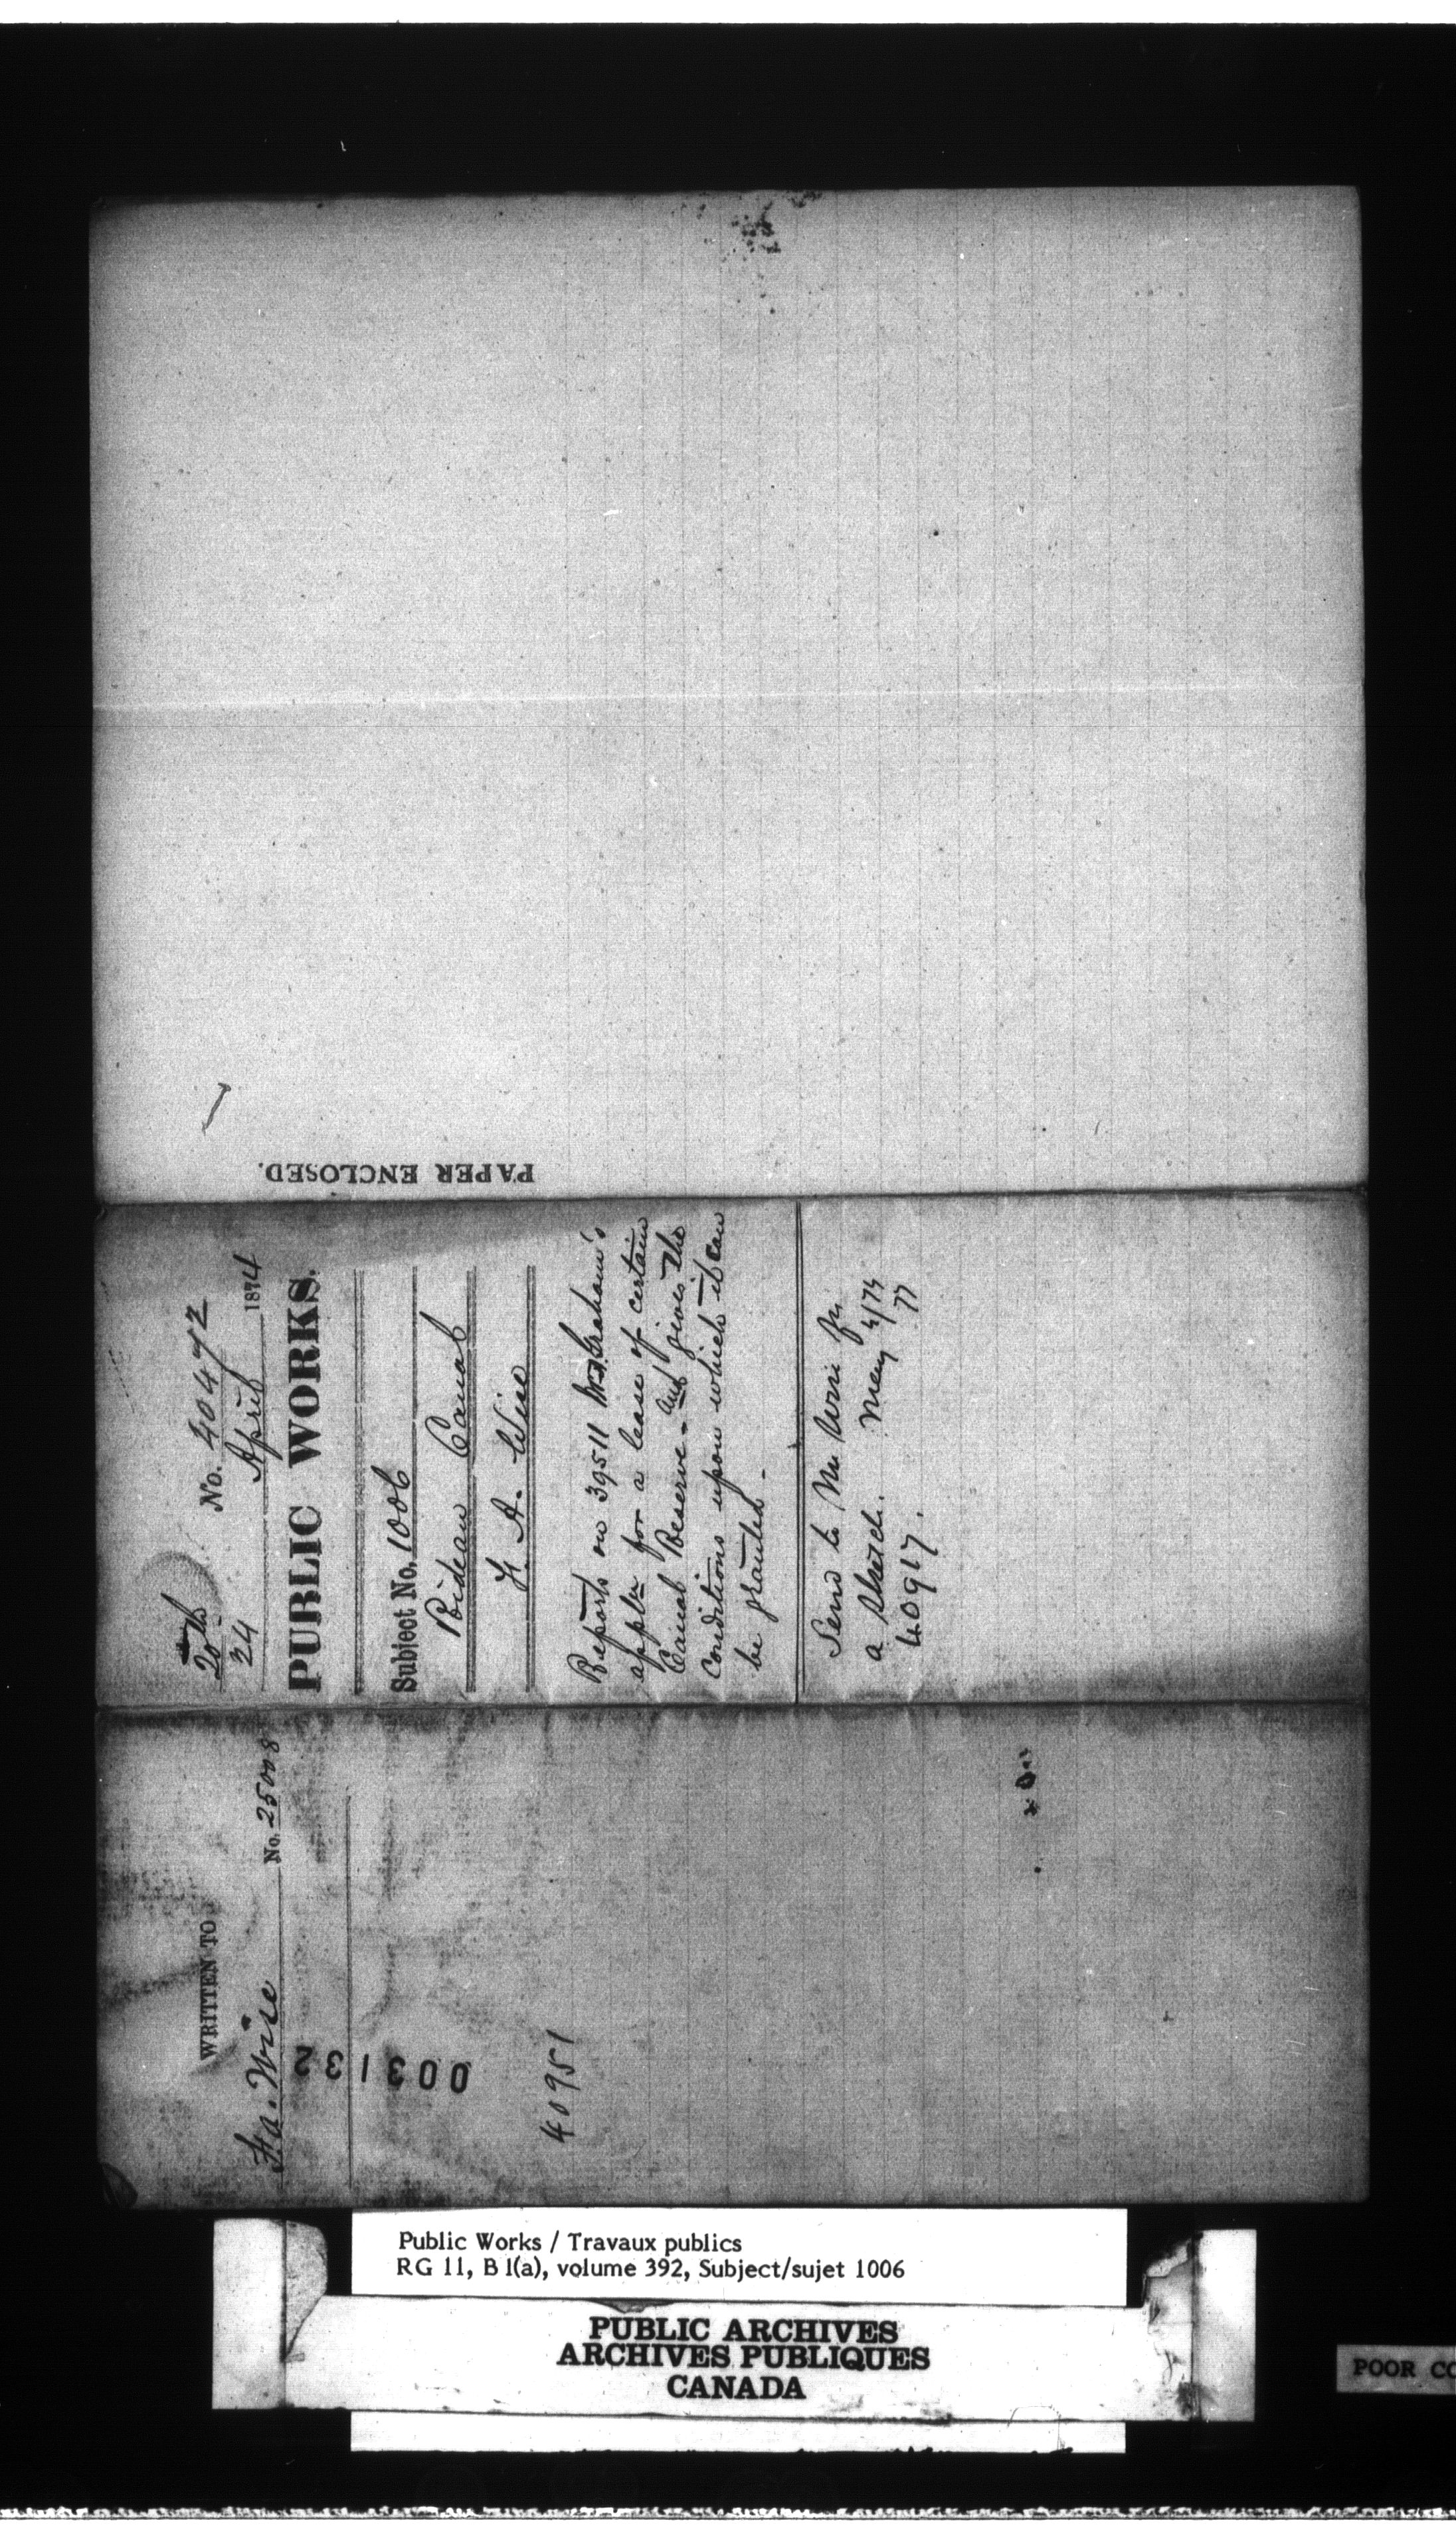 PAPER ENCLOSED.
20th No. 40472
24 April 1874
PUBLIC WORKS.
Subject No. 1006
Rideau Canal
F. A. Wise
Reports on 39511 Graham's
appln for a lease of certain
Canal Reserve - and gives the
conditions upon which it can
be granted -
Send to Mr Wise for
a sketch. May 4/74
40917.
WRITTEN TO
F. a. Wise No. 25008
003132
40951
Public Works / Travaux publics
RG 11, B 1(a), volume 392, Subject/sujet 1006
PUBLIC ARCHIVES
ARCHIVES PUBLIQUES
CANADA
POOR CO